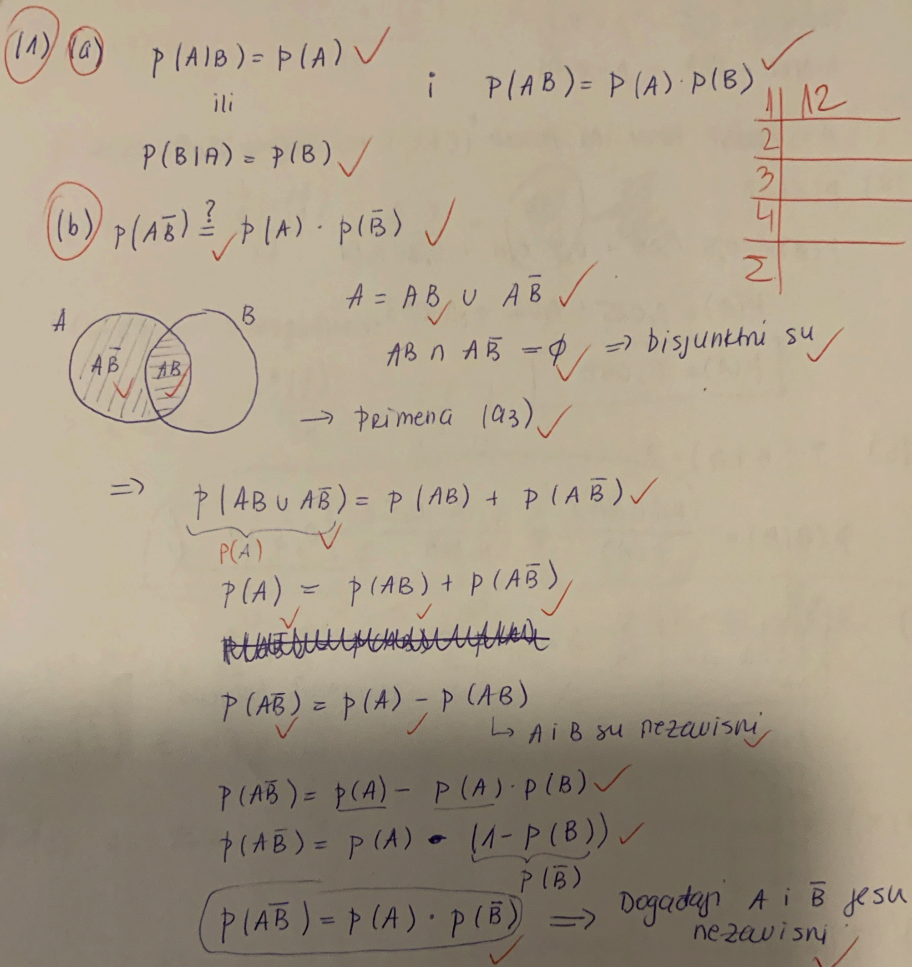 (1) (a) P(A|B) = P(A) ✓
ili i P(AB) = P(A) · P(B) ✓
P(B|A) = P(B) ✓
1 | 12
2
3
4
Σ
(b) P(AB̄) ≟ P(A) · P(B̄) ✓
A = AB ∪ AB̄ ✓
AB ∩ AB̄ = ∅ => Disjunktni su ✓
A B
AB̄ AB
→ primena (a3) ✓
=> P(AB ∪ AB̄) = P(AB) + P(AB̄) ✓
P(A)
P(A) = P(AB) + P(AB̄)
P(AB̄) = P(A) - P(AB)
↳ A i B su nezavisni
P(AB̄) = P(A) - P(A) · P(B) ✓
P(AB̄) = P(A) · (1 - P(B)) ✓
P(B̄)
P(AB̄) = P(A) · P(B̄) => Događaji A i B̄ jesu
nezavisni ✓